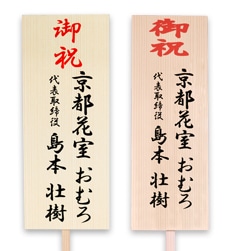 御祝
京都花室 おむろ
代表取締役 島本 壮樹
御祝
京都花室 おむろ
代表取締役 島本 壮樹